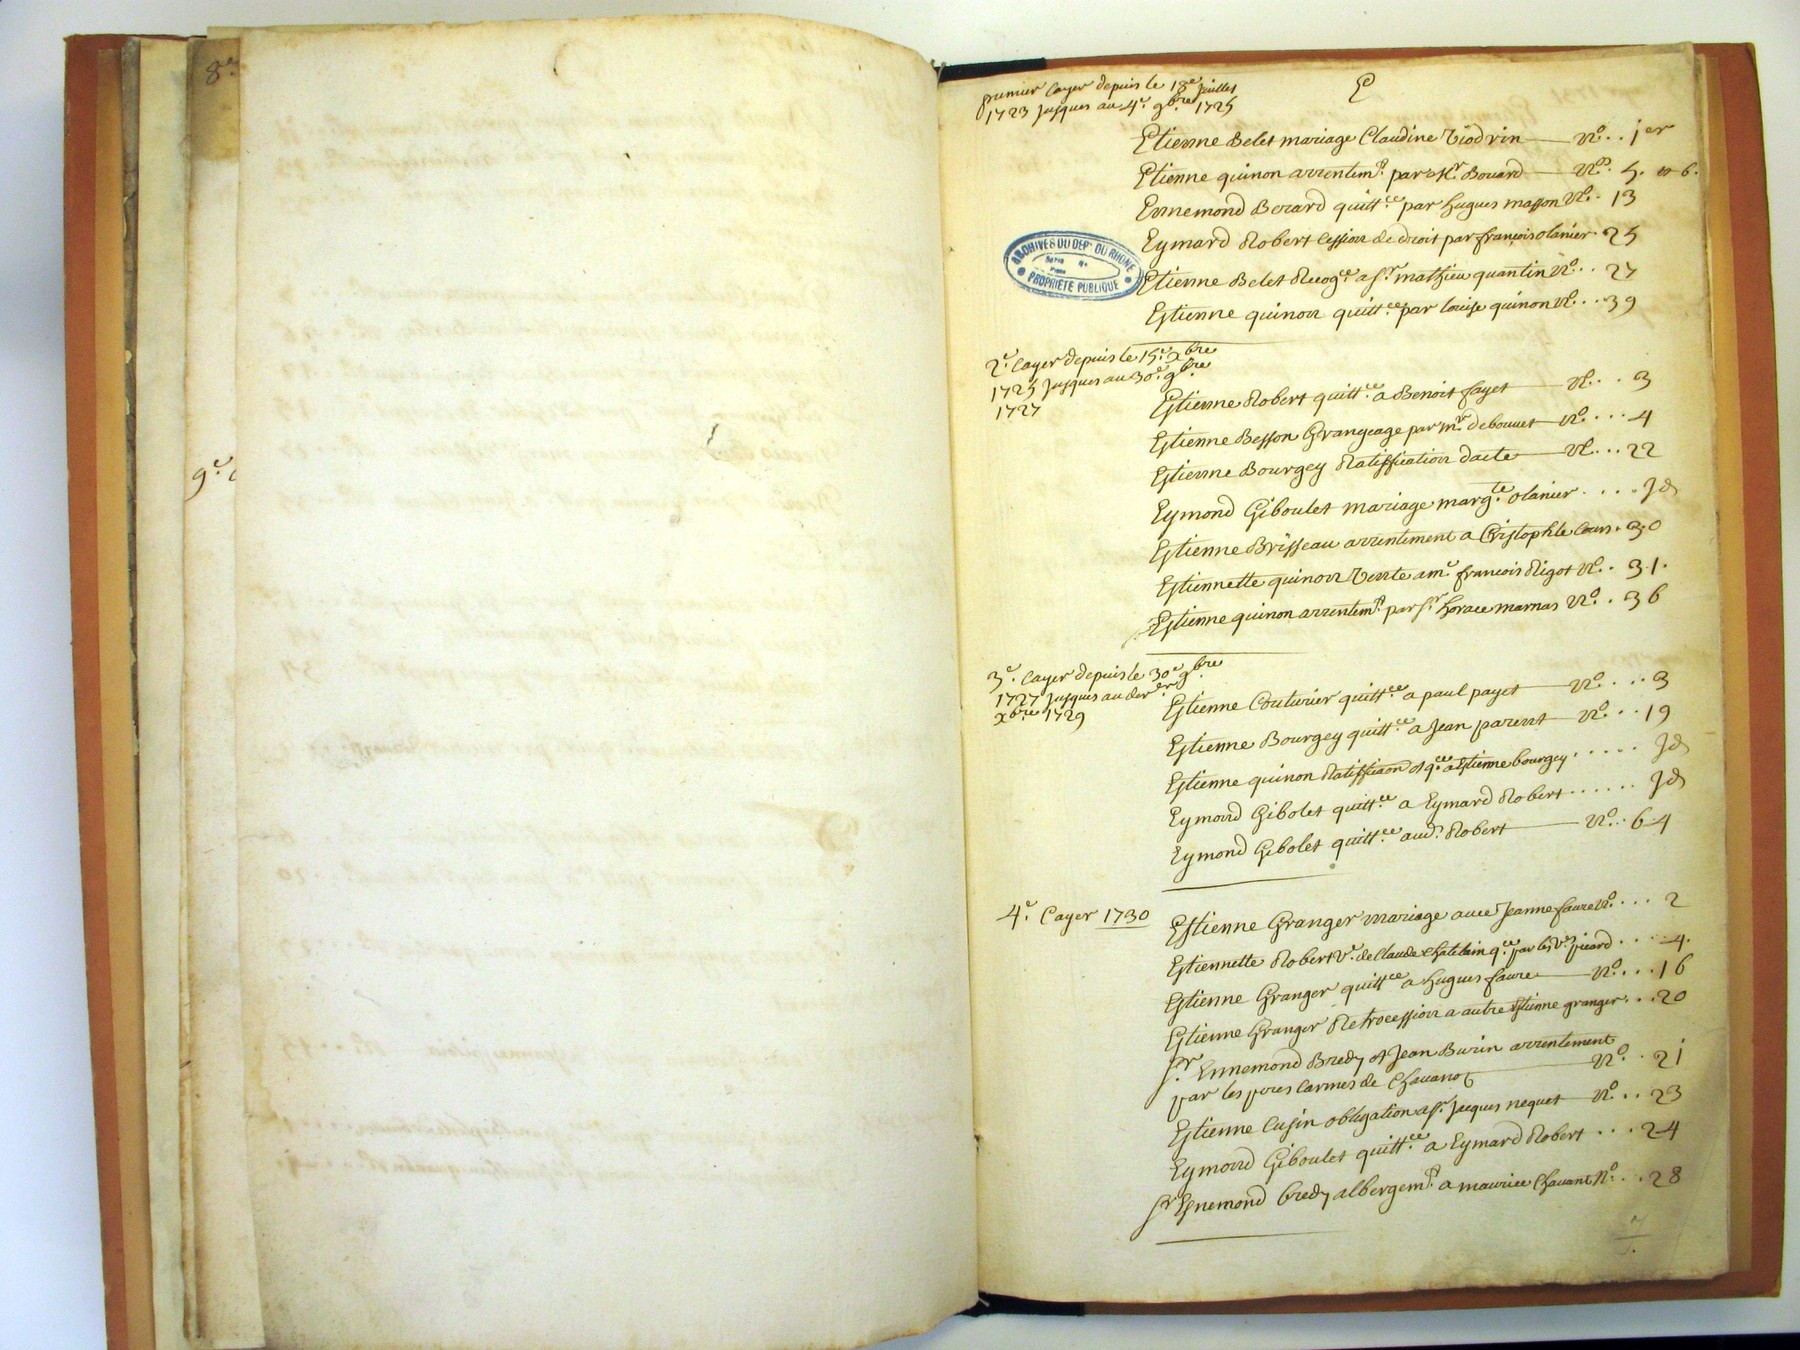 8e.
9e.
E
premier Cayer depuis le 18e Juillet
1723 Jusques au 4e. 9bre 1725
Etienne Belet mariage Claudine Viodrin No.. 1er
Etienne quinon arrentemt. par Mr. Bouard Nos. 5. et 6.
Ennemond Berard quittce par hugues masson No. 13
Eymard Robert Cession de droit par francois olanier. 25
ARCHIVES DU DEPT DU RHONE
PROPRIÉTÉ PUBLIQUE
Etienne Belet Recogce a sr. mathieu quantin No... 27
Estienne quinon quittce par louise quinon No... 39
2e. Cayer depuis le 15e. xbre
1725 Jusques au 30e. 9bre
1727
Estienne Robert quittce a Benoit fayet No... 3
Estienne Besson Grangeage par mr. debouuet No.... 4
Estienne Bourgey Ratiffication dacte No... 22
Eymond Giboulet mariage margte. olanier .... Id
Estienne Brisseau arrentement a Cristophle Cours. 30
Estiennette quinon Vente a me. francois Rigot No.. 31.
Estienne quinon arrentemt. par sr. horace marnas No.. 36
3e. Cayer depuis le 30e 9bre
1727 Jusques au derer
xbre 1729
Estienne Couturier quittce a paul payet No.... 3
Estienne Bourgey quittce a Jean parent No... 19
Estienne quinon Ratiffiaon et qce a Estienne bourgey ..... Id
Eymond Gibolet quittce a Eymard Robert ...... Id
Eymond Gibolet quittce aud. Robert No.. 64
4e. Cayer 1730
Estienne Granger mariage avec Jeanne faure No.... 2
Estiennette Robert ve. de Claude Chatelain qce par les Picard .... 4.
Estienne Granger quittce a hugues faure No... 16
Estienne Granger Retrocession a autre Estienne granger... 20
Sr. Ennemond Bredy et Jean Burin arrentement
par les peres Carmes de Chauanoz No.. 21
Estienne Cusin obligation a sr. Jacques nequet No.. 23
Eymond Giboulet quittce a Eymard Robert ... 24
Sr Ennemond bredy albergemt. a maurice Chauant No.. 28